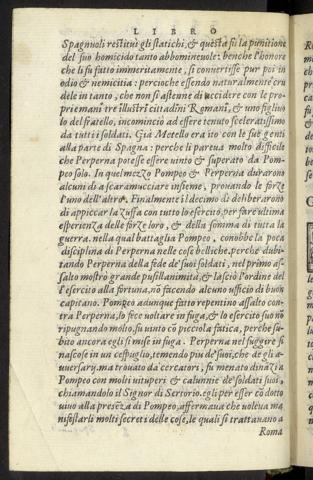 LIBRO
Spagnuoli restitui gli statichi, & questa fu la punitione
del suo homicidio tanto abbomineuole: benche l'honore
che li fu fatto immeritamente, si conuertisse pur poi in
odio & nemicitia: percioche essendo naturalmente cru
dele in tanto, che non si astenne di uccidere con le pro
prie mani tre illustri cittadini Romani, & uno figliuo
lo del fratello, incominciò ad essere tenuto sceleratissimo
da tutti i soldati. Già Metello era ito con le sue genti
alla parte di Spagna: perche li pareua molto difficile
che Perperna potesse essere uinto & superato da Pom-
peo solo. In quel mezzo Pompeo & Perperna durarono
alcuni dì a scaramucciare insieme, prouando le forze
l'uno dell'altro. Finalmente il decimo dì deliberarono
di appiccar la zuffa con tutto lo esercito, per fare ultima
esperienza delle forze loro, & della somma di tutta la
guerra. nella qual battaglia Pompeo, conobbe la poca
disciplina di Perperna nelle cose belliche, perche dubi-
tando Perperna della fede de' suoi soldati, nel primo as-
salto mostrò grande pusillanimità, & lasciò l'ordine del
l'esercito alla fortuna, nō facendo alcuno ufficio di buon
capitano. Pompeo adunque fatto repentino assalto con-
tra Perperna, lo fece uoltare in fuga, & lo esercito suo nō
ripugnando molto, fu uinto cō piccola fatica, perche su-
bito ancora egli si mise in fuga. Perperna nel fuggire si
nascose in un cespuglio, temendo piu de' suoi, che de gli a-
uuersary. ma trouato da' cercatori, fu menato dināzi a
Pompeo con molti uituperij & calunnie de' soldati suoi,
chiamandolo il Signor di Sertorio. egli per esser cōdotto
uiuo alla presēza di Pompeo, affermaua che uoleua ma
nifestarli molti secreti delle cose, le quali si trattauano a
Roma